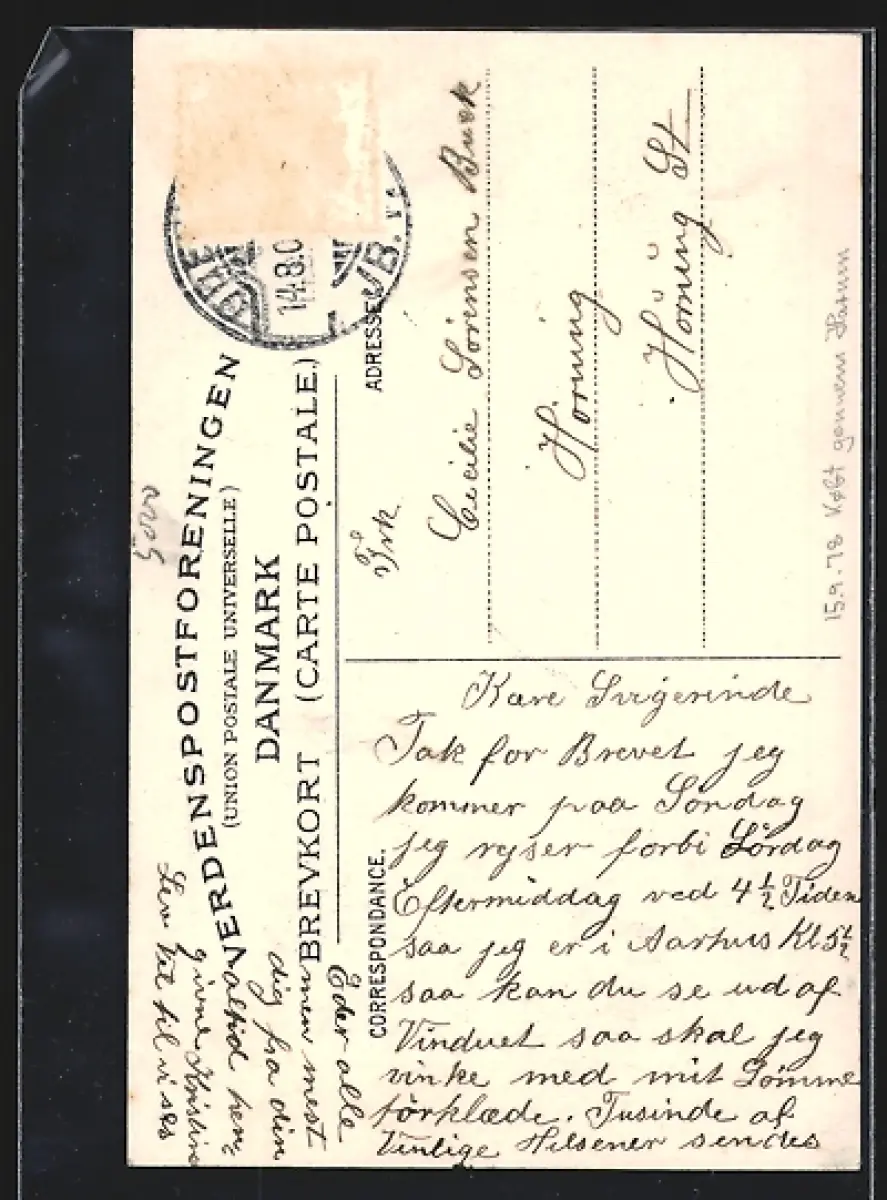 VERDENSPOSTFORENINGEN
(UNION POSTALE UNIVERSELLE)
DANMARK
BREVKORT (CARTE POSTALE.)
5000
14.8.0
JB.
ADRESSE
Frk
Cecilie Sörinsen Busk
Horning
Hörning St
15.9.78 Købt gennem
CORRESPONDANCE.
Kære Svigerinde
Tak for Brevet jeg
kommer paa Sondag
jeg rejser forbi Lördag
Eftermiddag ved 4½ Tiden
saa jeg er i Aarhus Kl 5½
saa kan du se ud af
Vinduet saa skal jeg
vinke med mit Lömme
törklæde. Tusinde af
Venlige Hilsener sendes
Eder alle
men mest
dig fra din
altid hen-
givne Kristine
Lev vel til vi ses